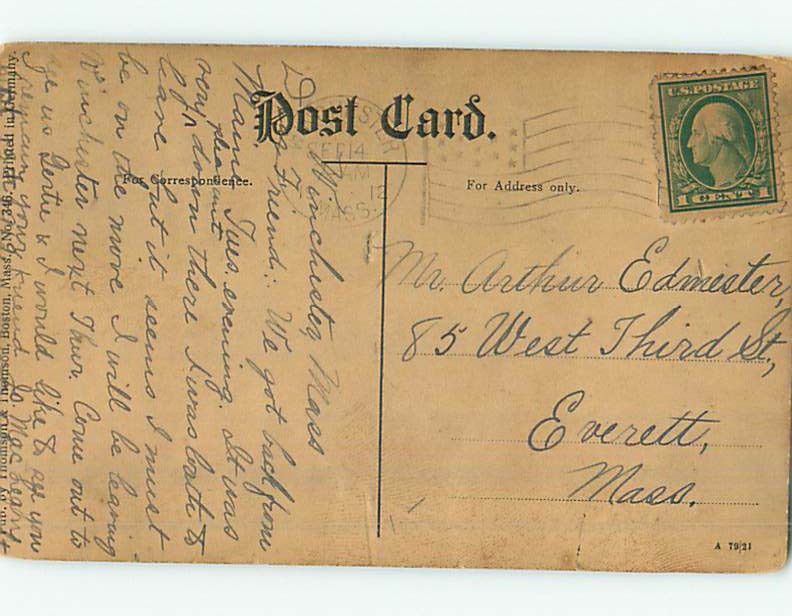 Post Card.
For Correspondence.
For Address only.
U.S. POSTAGE
1 CENT 1
SEP 14
AM
12
MASS.
Winchester, Mass
Dear Friend: We got back from
Maine Tues evening. It was
very pleasant down there I was loath to
leave but it seems I must
be on the move I will be leaving
Winchester next Thur. Come out to
us Gertie & I would like to see you
I remain your friend
Mr. Arthur Edmester,
85 West Third St,
Everett,
Mass.
Pub. by Thomson & Thomson, Boston, Mass. No. 346. Printed in Germany.
A 79/21